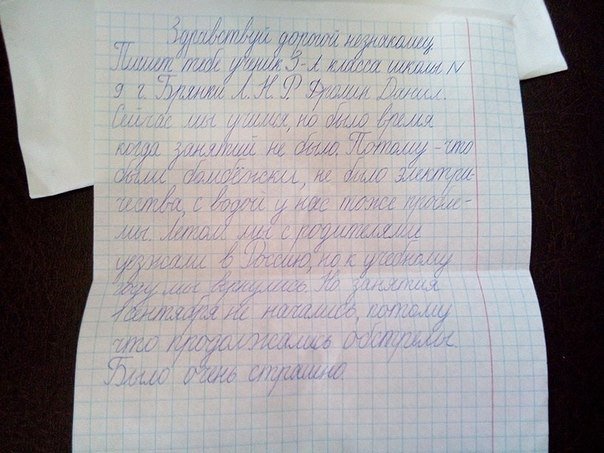 Здравствуй дорогой незнакомец
Пишет тебе ученик 3-А класса школы N
9 г. Брянки Л.Н.Р Фролин Данил.
Сейчас мы учимся, но было время
когда занятий не было. Потому-что
были бомбёжки, не было электри-
чества, с водой у нас тоже пробле-
мы. Летом мы с родителями
уезжали в Россию, но к учебному
году мы вернулись. Но занятия
1 сентября не начались, потому
что продолжались обстрелы.
Было очень страшно.